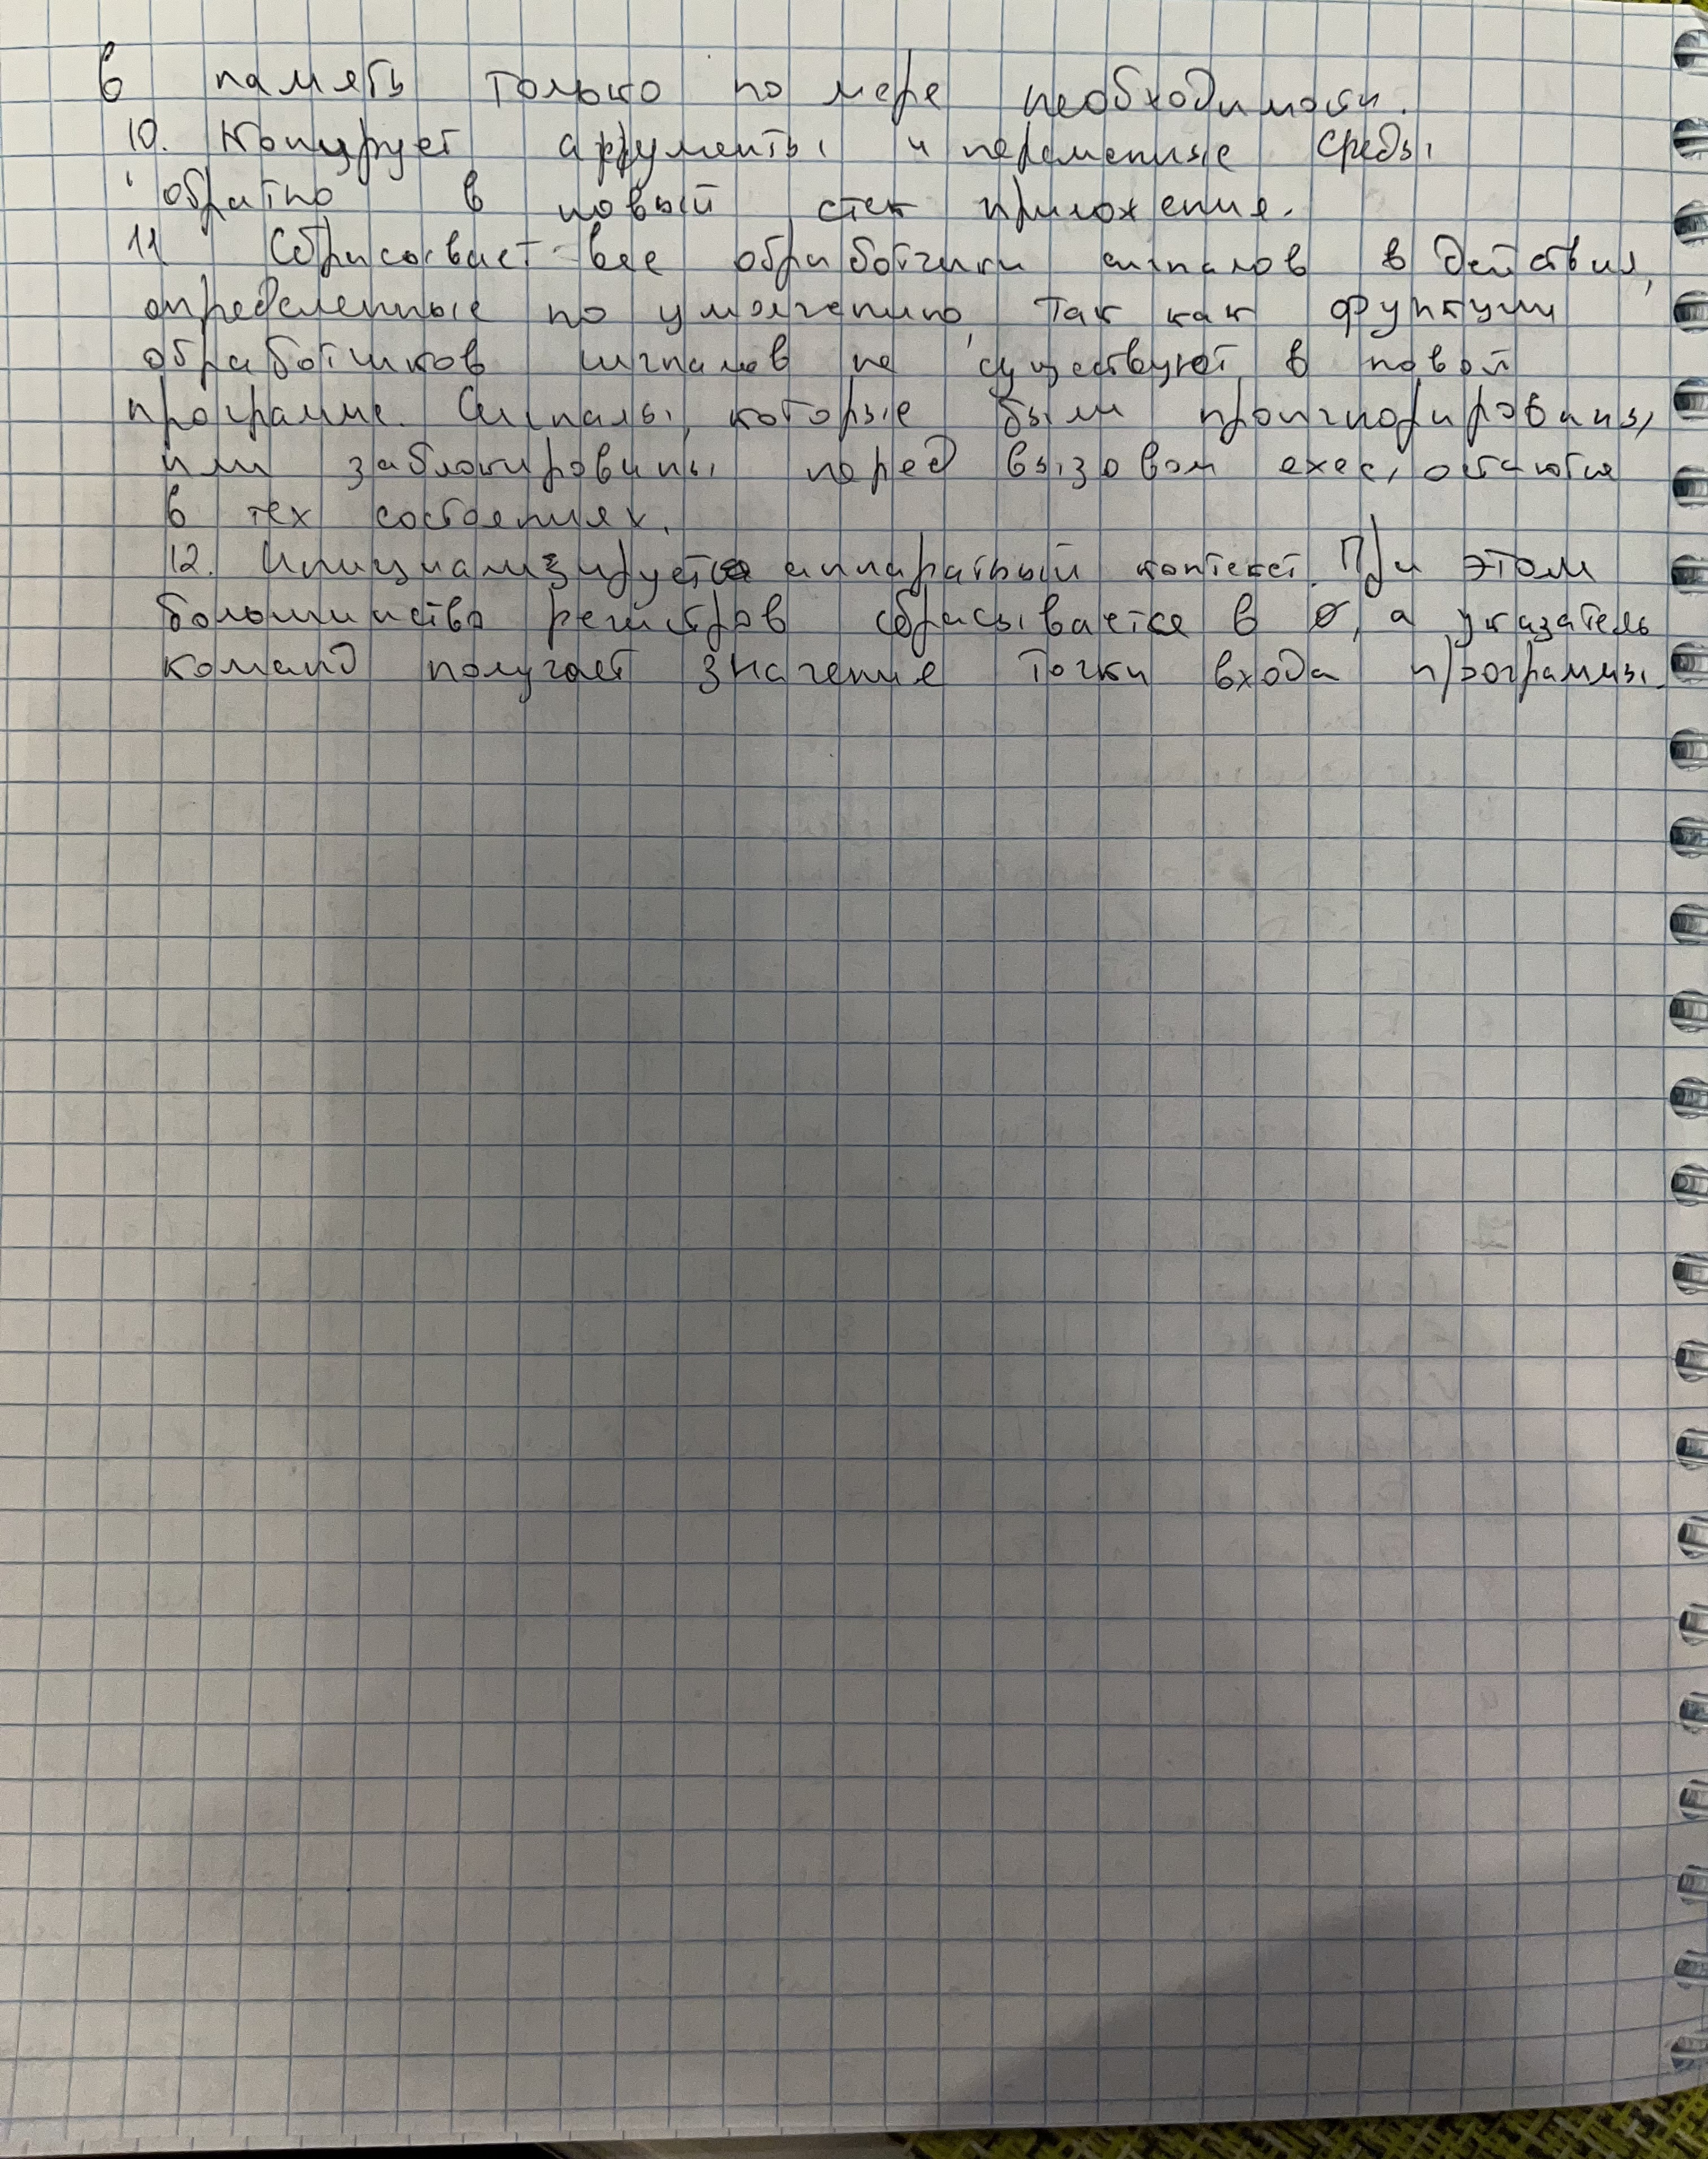 в память только по мере необходимости.
10. Копирует аргументы и переменные среды
обратно в новый стек приложения.
11 Сбрасывает все обработчики сигналов в действия,
определенные по умолчанию, так как функции
обработчиков сигналов не существуют в новой
программе. Сигналы, которые были проигнорированы,
или заблокированы перед вызовом exec, остаются
в тех состояниях.
12. Инициализируется аппаратный контекст. При этом
большинство регистров сбрасывается в 0, а указатель
команд получает значение точки входа программы.